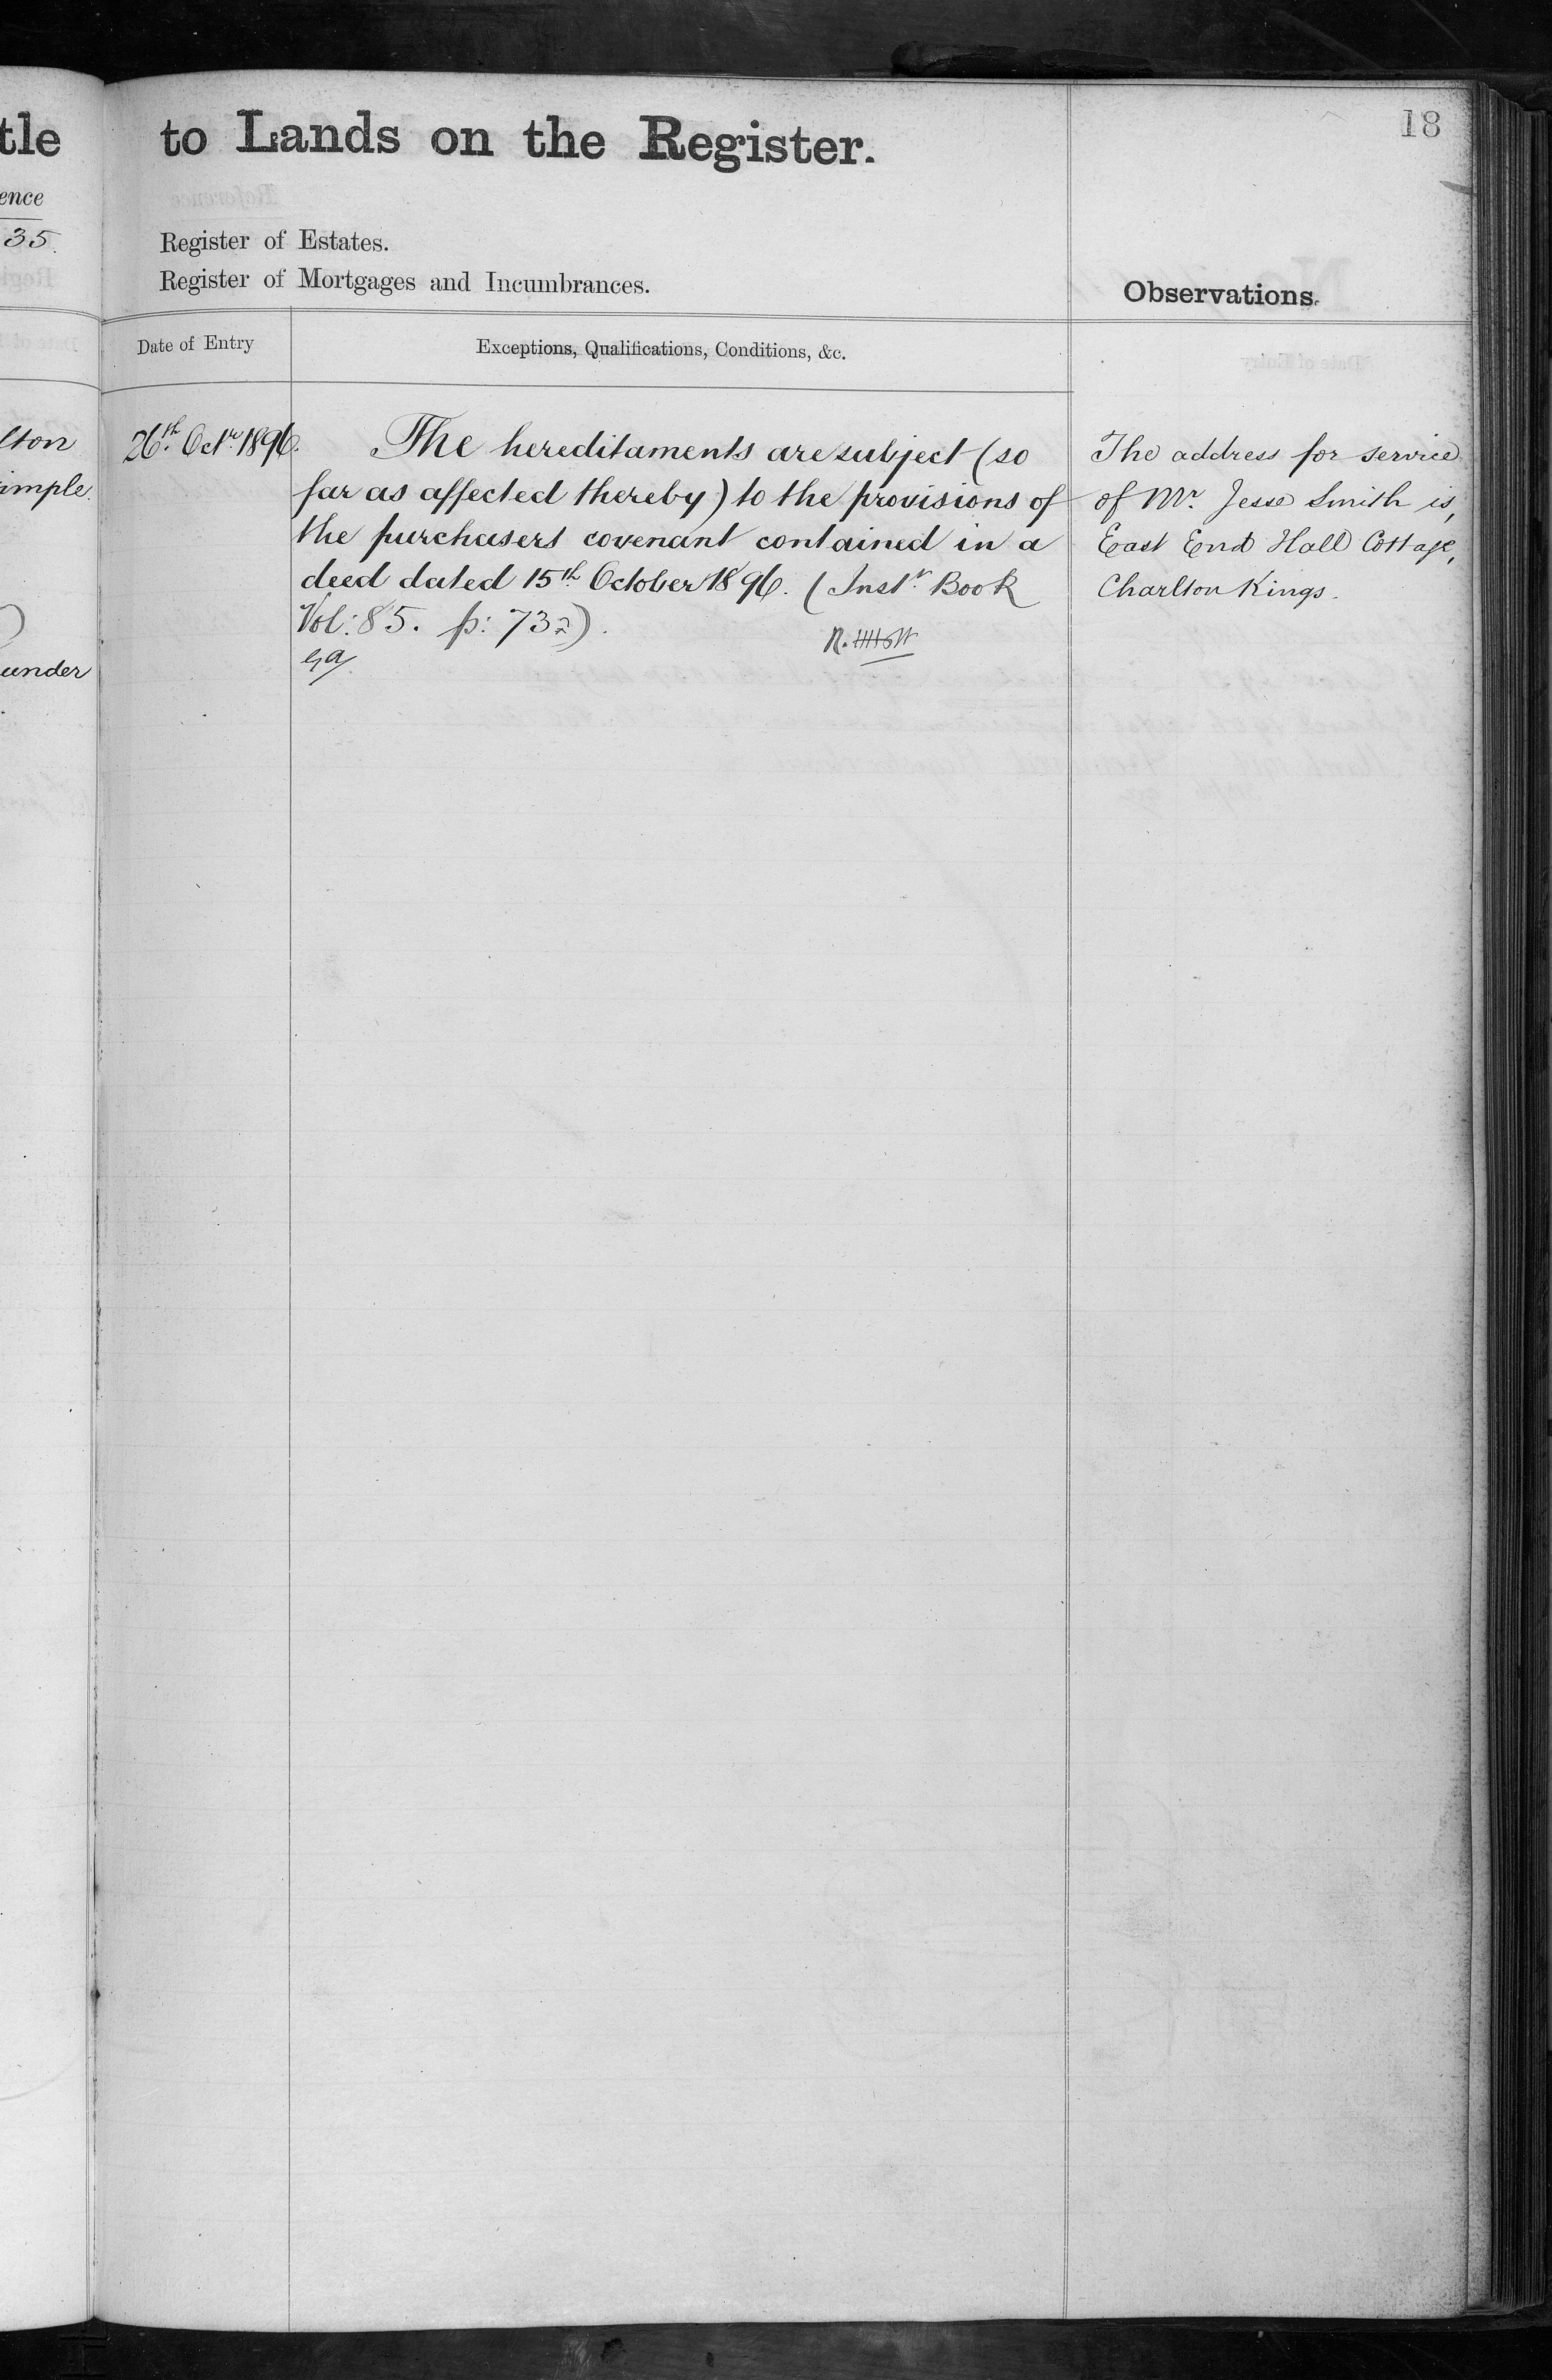 tle
ence
35.
lton
imple.
)
under
18
to Lands on the Register.
Register of Estates.
Register of Mortgages and Incumbrances.
Observations.
Date of Entry
Exceptions, Qualifications, Conditions, &c.
26th. Octr. 1896.
The hereditaments are subject (so
far as affected thereby) to the provisions of
the purchasers covenant contained in a
deed dated 15th October 1896. (Instr. Book
Vol: 85. p: 732).
The address for service
of Mr. Jesse Smith is,
East End Hall Cottage,
Charlton Kings.